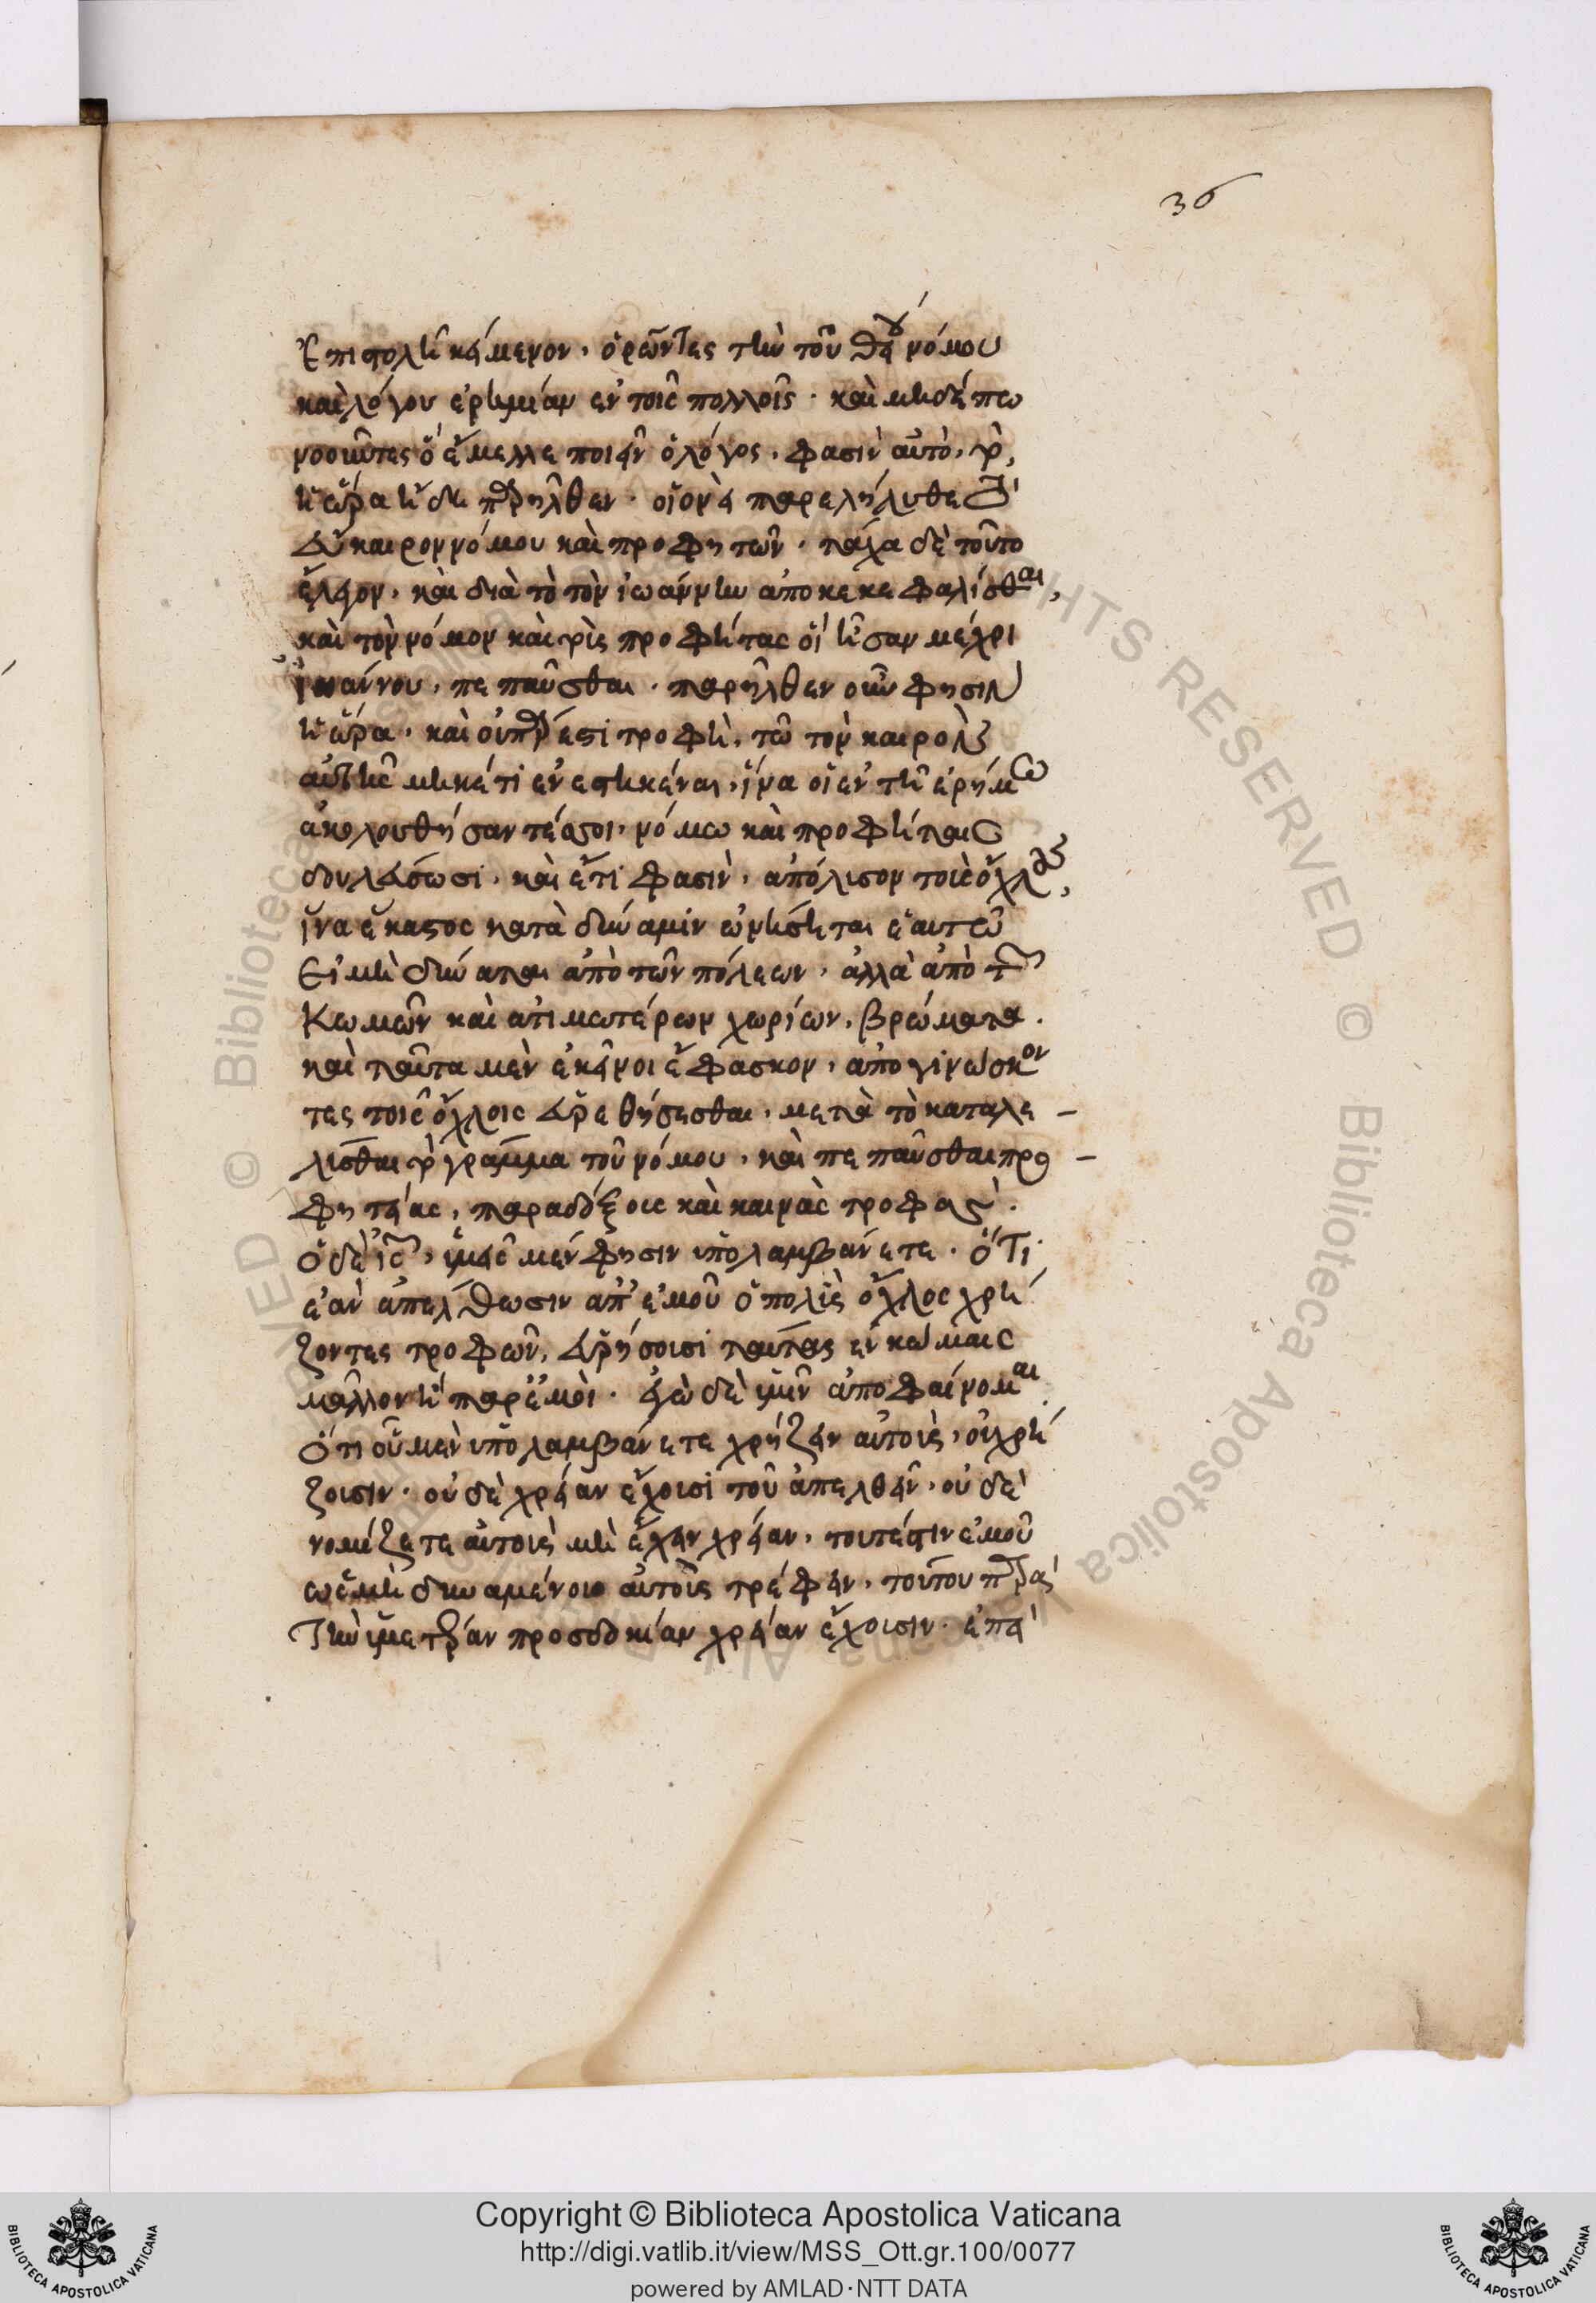 36
ἐπιπολῆ κείμενον, ὁρῶντες τὴν τοῦ θείου νόμου
καὶ λόγου ἐρημίαν ἐν τοῖς πολλοῖς· καὶ μηδέπω
νοοῦντες ὃ ἔμελλε ποιεῖν ὁ λόγος, φασὶν αὐτῶ, τὸ,
ἡ ὥρα ἤδη παρῆλθεν· οἱονεὶ παρελήλυθε
καιρὸν νόμου καὶ προφητῶν· τάχα δὲ τοῦτο
ἔλεγον, καὶ διὰ τὸ τὸν ἰωάννην ἀποκεκεφαλίσθαι,
καὶ τὸν νόμον καὶ τοὺς προφήτας οἳ ἦσαν μέχρι
ἰωάννου, πεπαῦσθαι· παρῆλθεν οὖν φησιν
ἡ ὥρα, καὶ οὐ πάρεστι τροφὴ, τῶ τὸν καιρὸν
αὐτῆς μηκέτι ἐνεστηκέναι, ἵνα οἱ ἐν τῆ ἐρήμω
ἀκολουθήσαντές σοι, νόμω καὶ προφήταις
δουλεύσωσι, καὶ ἔτι φασὶν, ἀπόλυσον τοὺς ὄχλους,
ἵνα ἕκαστος κατὰ δύναμιν ὠνήσηται ἑαυτῶ
εἰ μὴ δύναται ἀπὸ τῶν πόλεων, ἀλλὰ ἀπὸ τῶν
κωμῶν καὶ ἀτιμωτέρων χωρίων, βρώματα.
καὶ ταῦτα μὲν ἐκεῖνοι ἔφασκον, ἀπογινώσκον
τες τοῖς ὄχλοις εὑρεθήσεσθαι, μετὰ τὸ καταλε-
λῦσθαι τὸ γράμμα τοῦ νόμου, καὶ πεπαῦσθαι προ-
φητείας, παραδόξους καὶ καινὰς τροφάς.
ὁ δὲ ις, ὑμεῖς μέν φησιν ὑπολαμβάνετε· ὅτι
ἐὰν ἀπέλθωσιν ἀπ' ἐμοῦ ὁ πολὺς ὄχλος χρή
ζοντες τροφῶν, εὑρήσουσι ταύτας ἐν κώμαις
μᾶλλον ἢ παρ' ἐμοὶ· ἐγὼ δὲ ὑμῖν ἀποφαίνομαι.
ὅτι οὗ μὲν ὑπολαμβάνετε χρήζειν αὐτοὺς, οὐ χρή
ζουσιν· οὐδὲ χρείαν ἔχουσι τοῦ ἀπελθεῖν, οὐ δὲ
νομίζετε αὐτοὺς μὴ ἔχειν χρείαν, τουτέστιν ἐμοῦ
ὡς μὴ δυναμένου αὐτοὺς τρέφειν, τούτου παρὰ
τὴν ὑμετέραν προσδοκίαν χρείαν ἔχουσιν· ἐπεὶ
Copyright © Biblioteca Apostolica Vaticana
http://digi.vatlib.it/view/MSS_Ott.gr.100/0077
powered by AMLAD·NTT DATA